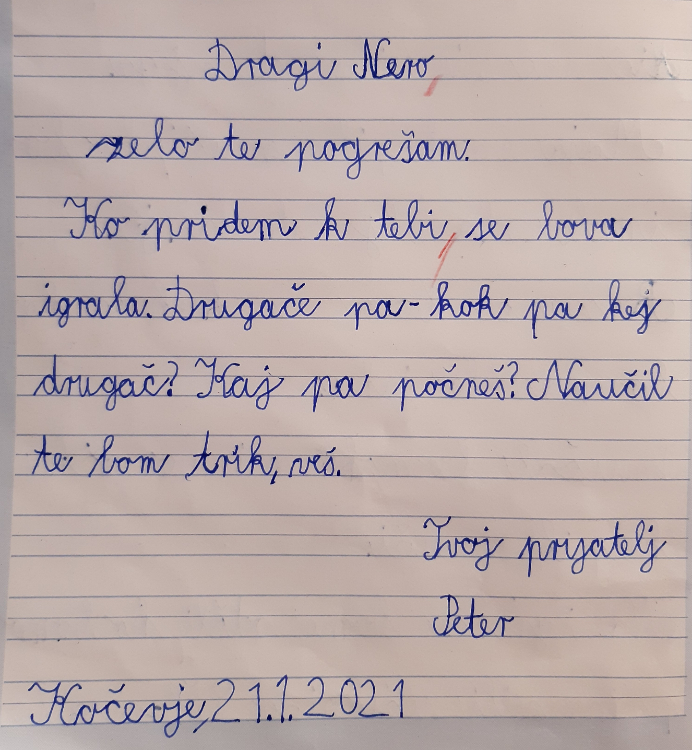 Dragi Nero,
zelo te pogrešam.
Ko pridem k tebi, se bova
igrala. Drugače pa - kok pa kej
drugač? Kaj pa počneš? Naučil
te bom trik, veš.
Tvoj prijatelj
Peter
Kočevje, 21.1.2021